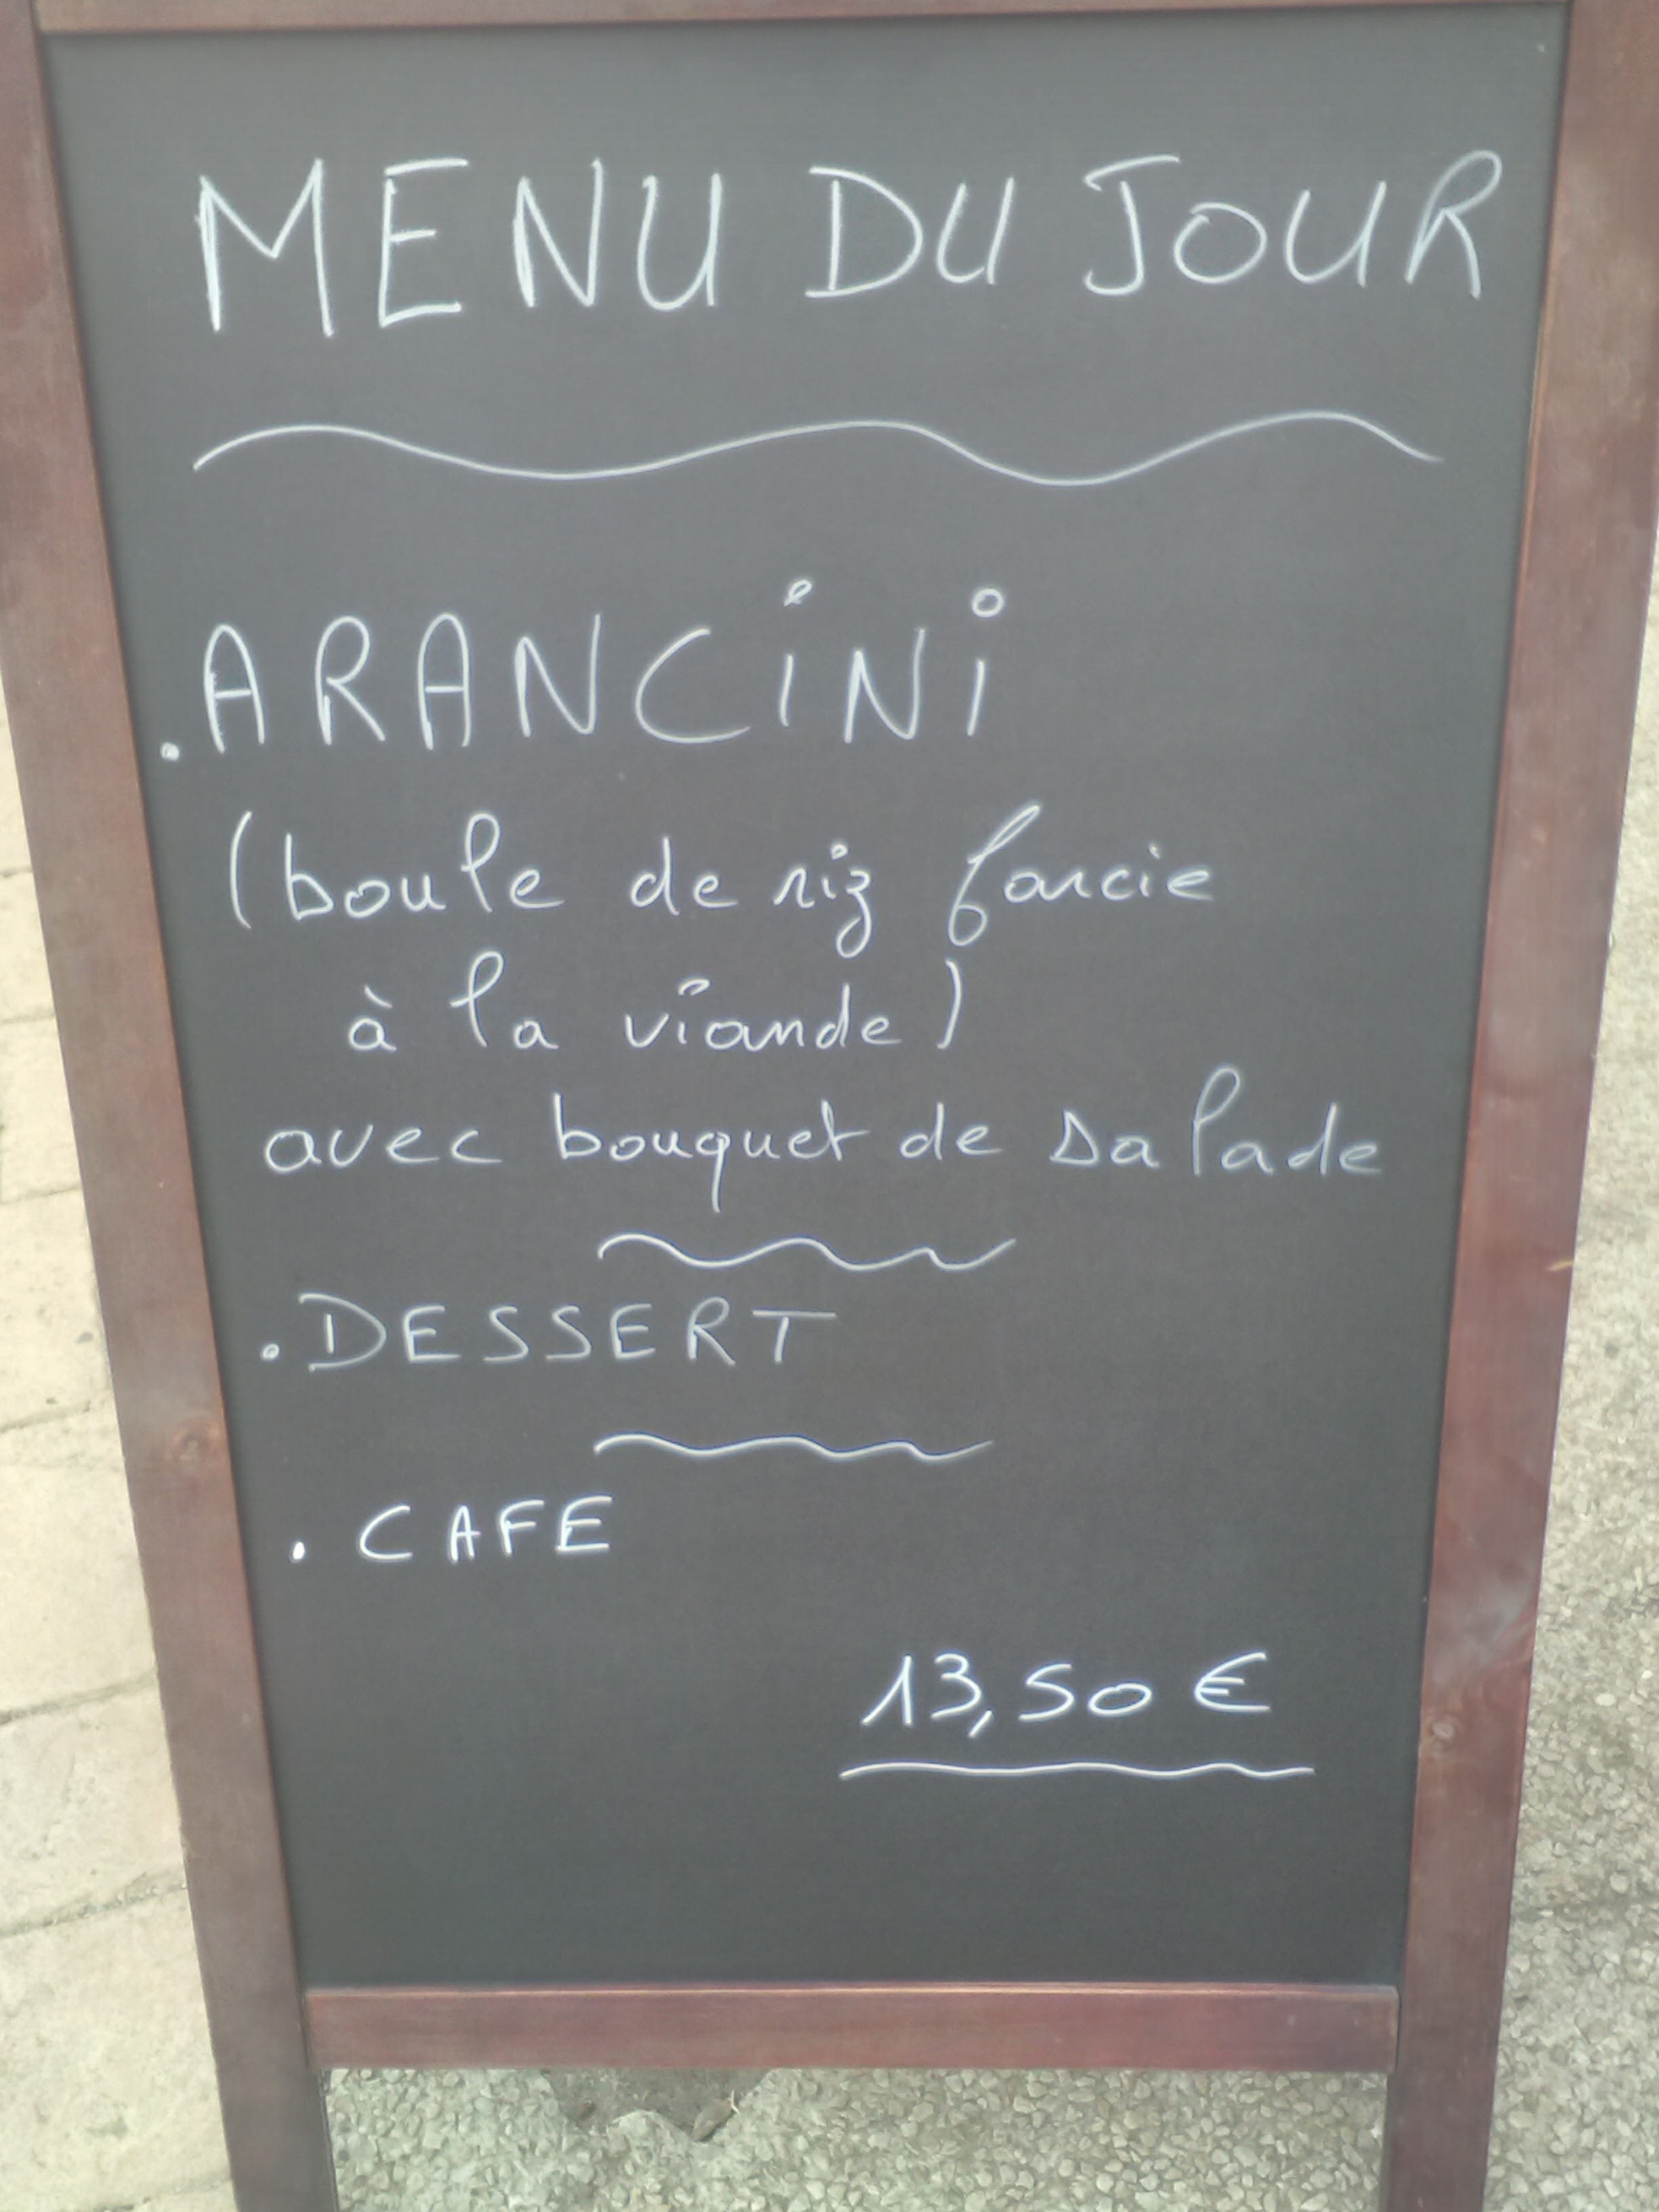 MENU DU JOUR
. ARANCiNi
(boule de riz farcie
à la viande)
avec bouquet de salade
. DESSERT
. CAFE
13,50 €